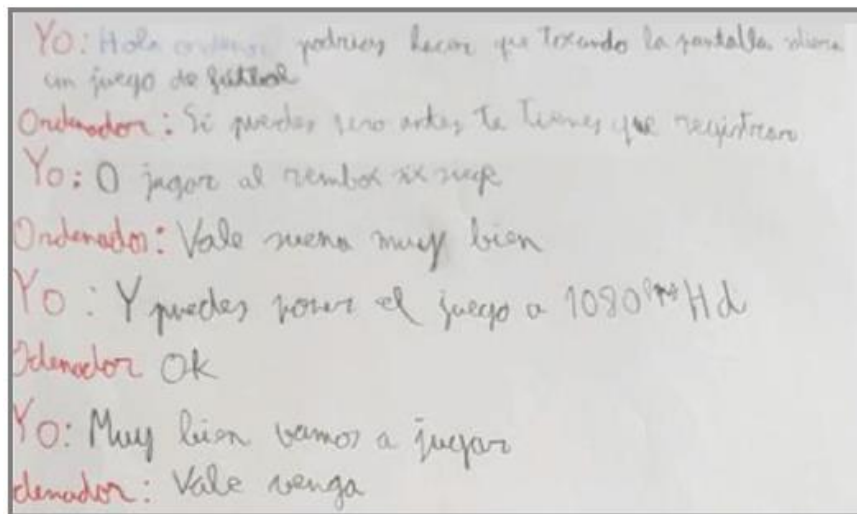 Yo: Hola ordenor podrias hacer que tocando la pantalla
un juego de fútbol
Ordenador: Si puedes pero antes te tienes que registrar
Yo: O jugar al
Ordenador: Vale suena muy bien
Yo: Y puedes poner el juego a 1080 Hd
Odenador OK
Yo: Muy bien vamos a jugar
denador: Vale venga